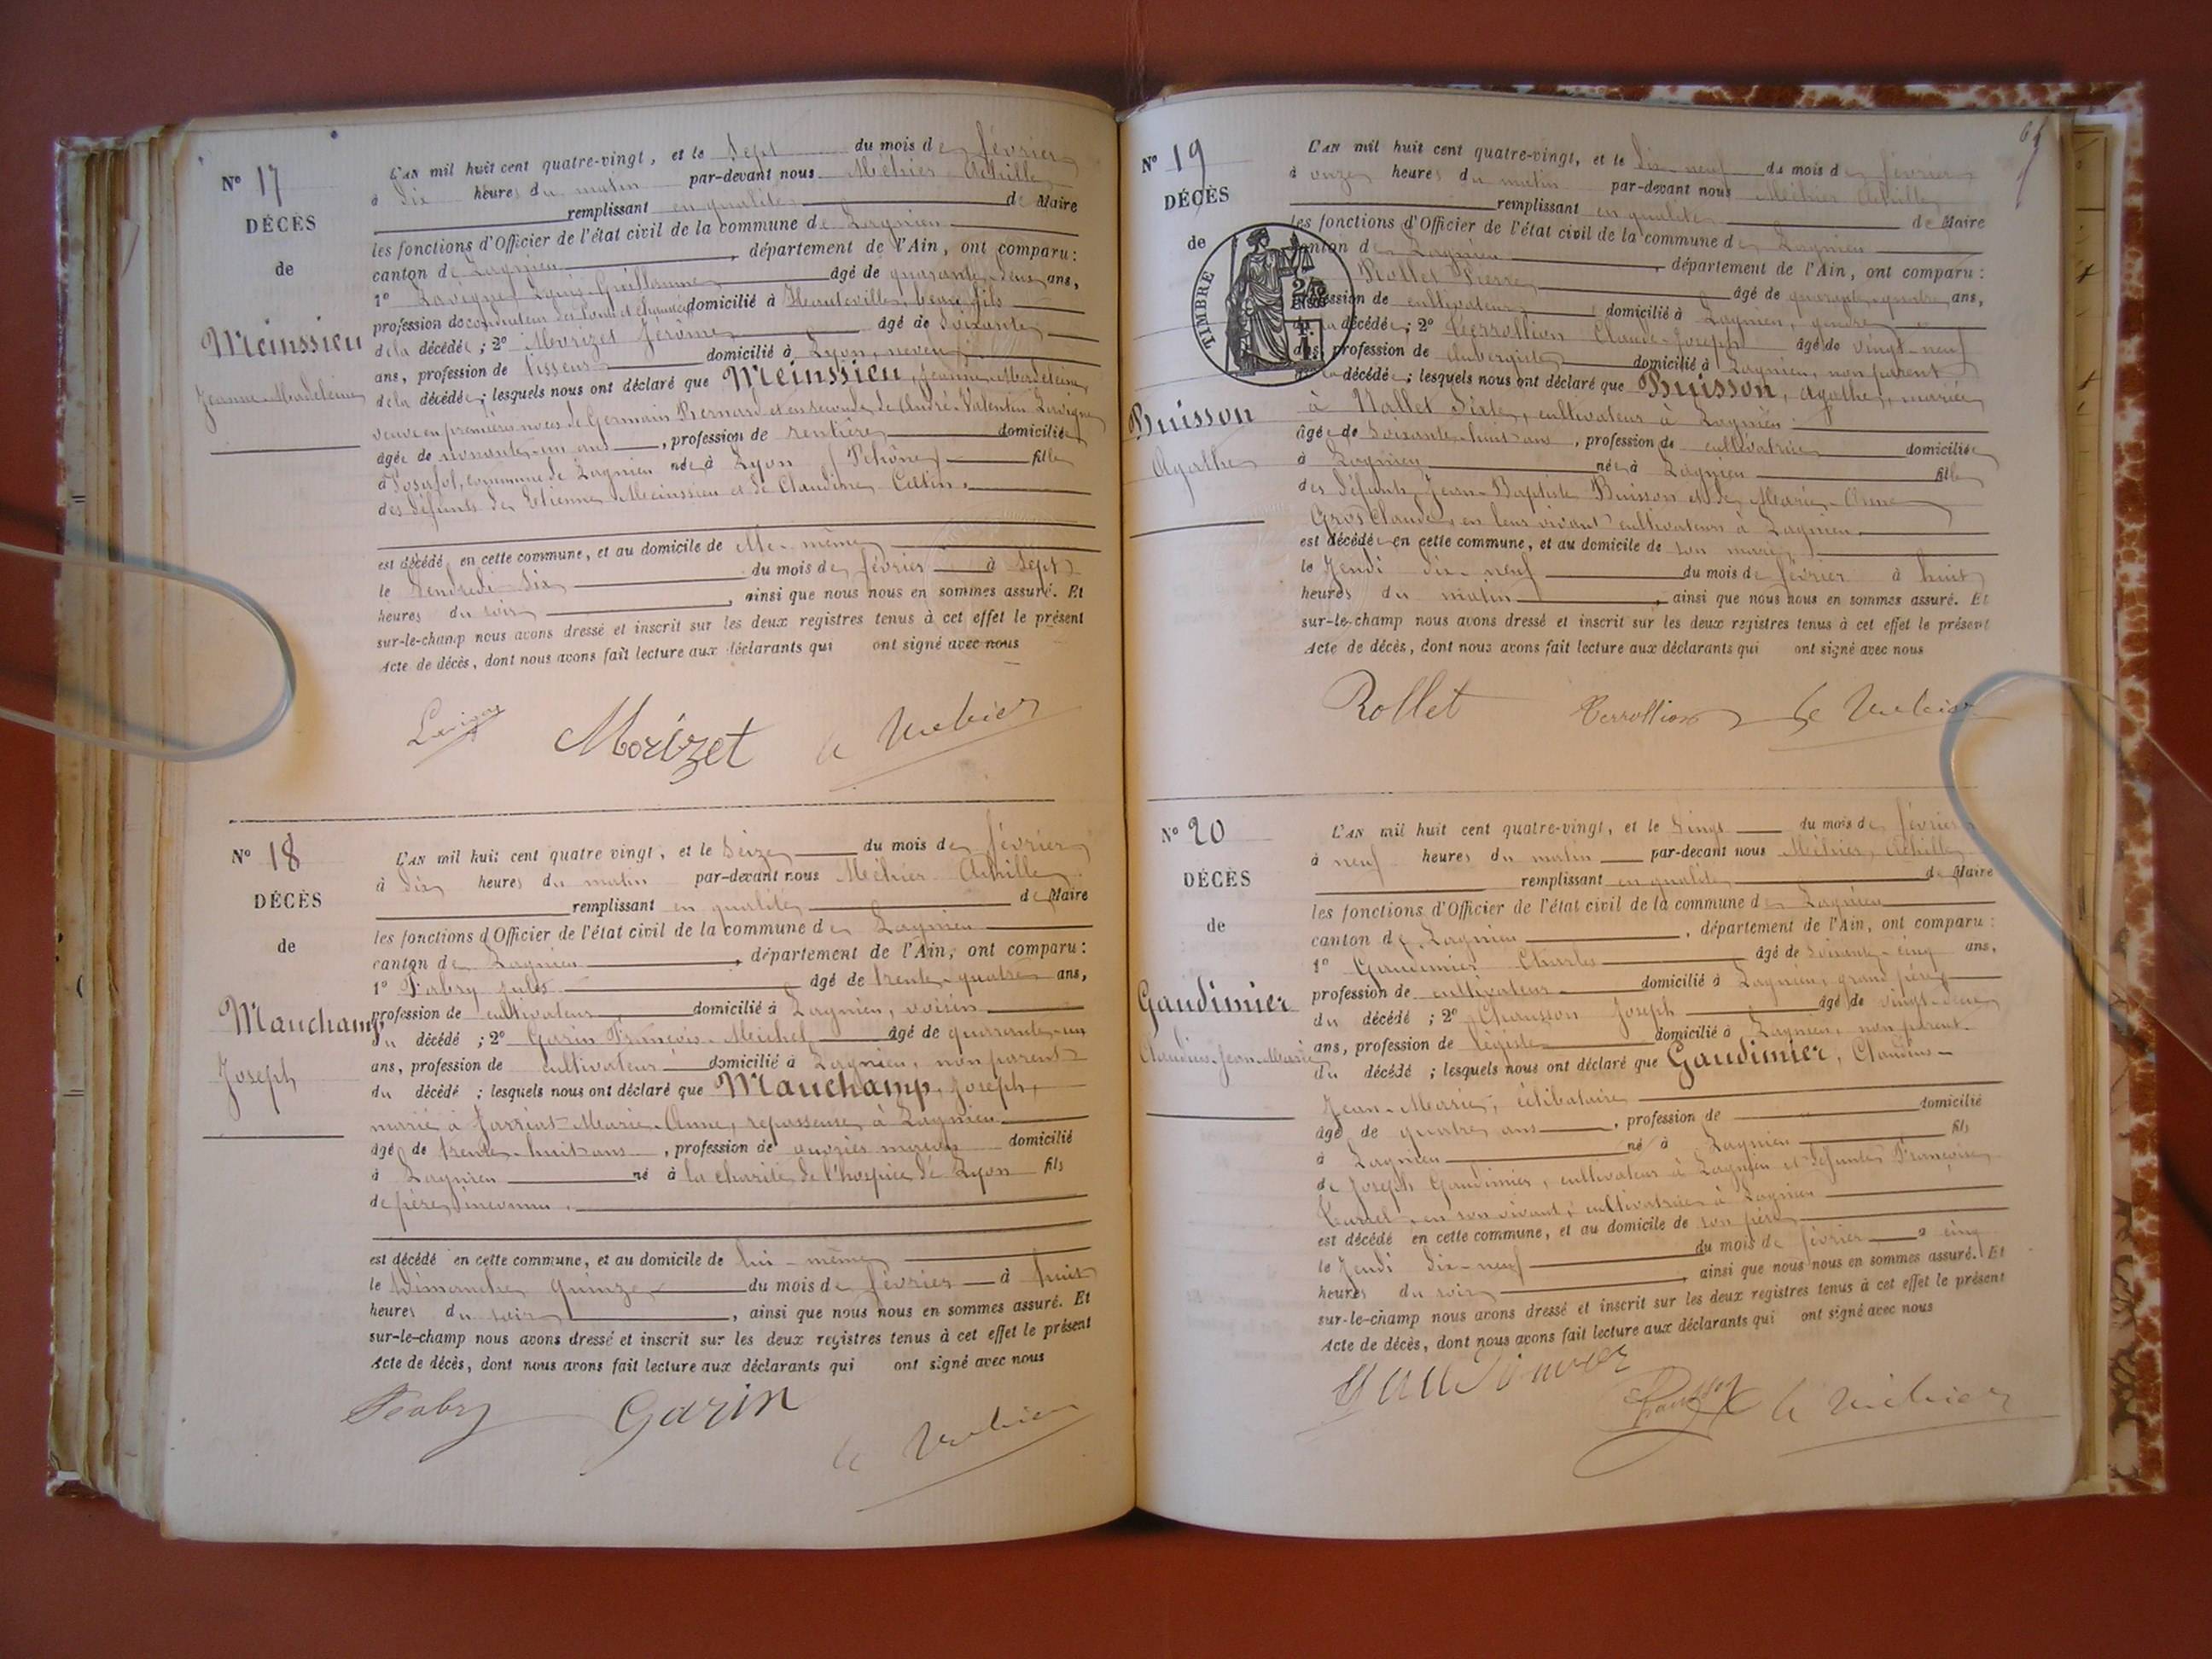 N° 17
DÉCÈS
de
Meinssieu
Jeanne-Madeleine
L'AN mil huit cent quatre-vingt, et le Sept du mois de février
à dix heures du matin par-devant nous Méhier Achille
remplissant en qualité de Maire
les fonctions d'Officier de l'état civil de la commune de Lagnieu
canton de Lagnieu, département de l'Ain, ont comparu :
1° Lavigne Guillaume âgé de quarante-deux ans,
profession de conducteur des Ponts et chaussées domicilié à Hauteville, beau fils
de la décédée ; 2° Morizet Jérôme âgé de soixante
ans, profession de tisseur domicilié à Lyon, neveu
de la décédée ; lesquels nous ont déclaré que Meinssieu, Jeanne-Madeleine,
veuve en premières noces de Germain Bernard et en secondes de André-Valentin Lavigne
âgée de nonante-un ans, profession de rentière domiciliée
à Posafol, commune de Lagnieu née à Lyon (Rhône) fille
des défunts de Etienne Meinssieu et de Claudine Catin.
est décédée en cette commune, et au domicile de elle-même
le Vendredi six du mois de février à sept
heures du soir, ainsi que nous nous en sommes assuré. Et
sur-le-champ nous avons dressé et inscrit sur les deux registres tenus à cet effet le présent
Acte de décès, dont nous avons fait lecture aux déclarants qui ont signé avec nous
Morizet A Méhier
N° 18
DÉCÈS
de
Mauchamp
Joseph
L'AN mil huit cent quatre vingt, et le Seize du mois de février
à dix heures du matin par-devant nous Méhier Achille
remplissant en qualité de Maire
les fonctions d'Officier de l'état civil de la commune de Lagnieu
canton de Lagnieu, département de l'Ain, ont comparu :
1° Fabry Jules âgé de trente-quatre ans,
profession de cultivateur domicilié à Lagnieu, voisin
du décédé ; 2° Garin François-Michel âgé de quarante-un
ans, profession de cultivateur domicilié à Lagnieu, non parent
du décédé ; lesquels nous ont déclaré que Mauchamp, Joseph,
marié à Jarriat Marie-Anne, repasseuse, à Lagnieu
âgé de trente-huit ans, profession de ouvrier maçon domicilié
à Lagnieu né à la charité de l'hospice de Lyon fils
de père inconnu.
est décédé en cette commune, et au domicile de lui-même
le Dimanche quinze du mois de février à huit
heures du soir, ainsi que nous nous en sommes assuré. Et
sur-le-champ nous avons dressé et inscrit sur les deux registres tenus à cet effet le présent
Acte de décès, dont nous avons fait lecture aux déclarants qui ont signé avec nous
Fabry Garin A Méhier
N° 19
DÉCÈS
de
TIMBRE
Buisson
Agathe
L'AN mil huit cent quatre-vingt, et le dix-neuf du mois de février
à onze heures du matin par-devant nous Méhier Achille
remplissant en qualité de Maire
les fonctions d'Officier de l'état civil de la commune de Lagnieu
canton de Lagnieu, département de l'Ain, ont comparu :
Rollet Pierre âgé de quarante-quatre ans,
profession de cultivateur domicilié à Lagnieu, gendre
de la décédée ; 2° Terrollion Claude-Joseph âgé de vingt-neuf
ans, profession de aubergiste domicilié à Lagnieu, non parent
de la décédée ; lesquels nous ont déclaré que Buisson, Agathe, mariée
à Nallet Sixte, cultivateur à Lagnieu
âgée de soixante-huit ans, profession de cultivatrice domiciliée
à Lagnieu née à Lagnieu fille
des défunts Jean-Baptiste Buisson et de Marie-Anne
Gros Claude, en leur vivant cultivateurs à Lagnieu
est décédée en cette commune, et au domicile de son mari
le Jeudi dix-neuf du mois de février à huit
heures du matin, ainsi que nous nous en sommes assuré. Et
sur-le-champ nous avons dressé et inscrit sur les deux registres tenus à cet effet le présent
Acte de décès, dont nous avons fait lecture aux déclarants qui ont signé avec nous
Rollet Terrollion A Méhier
N° 20
DÉCÈS
de
Gaudimier
Claudius-Jean-Marie
L'AN mil huit cent quatre-vingt, et le vingt du mois de février
à neuf heures du matin par-devant nous Méhier, Achille
remplissant en qualité de Maire
les fonctions d'Officier de l'état civil de la commune de Lagnieu
canton de Lagnieu, département de l'Ain, ont comparu :
1° Gaudimier Charles âgé de soixante-cinq ans,
profession de cultivateur domicilié à Lagnieu, grand père
du décédé ; 2° Chausson Joseph âgé de vingt-deux
ans, profession de légiste domicilié à Lagnieu, non parent
du décédé ; lesquels nous ont déclaré que Gaudimier, Claudius-
Jean-Marie, célibataire
âgé de quatre ans, profession de domicilié
à Lagnieu né à Lagnieu fils
de Joseph Gaudimier, cultivateur à Lagnieu et défunte Françoise
en son vivant, cultivatrice à Lagnieu
est décédé en cette commune, et au domicile de son père
le Jeudi dix-neuf du mois de février à cinq
heures du soir, ainsi que nous nous en sommes assuré. Et
sur-le-champ nous avons dressé et inscrit sur les deux registres tenus à cet effet le présent
Acte de décès, dont nous avons fait lecture aux déclarants qui ont signé avec nous
Gaudimier A Méhier